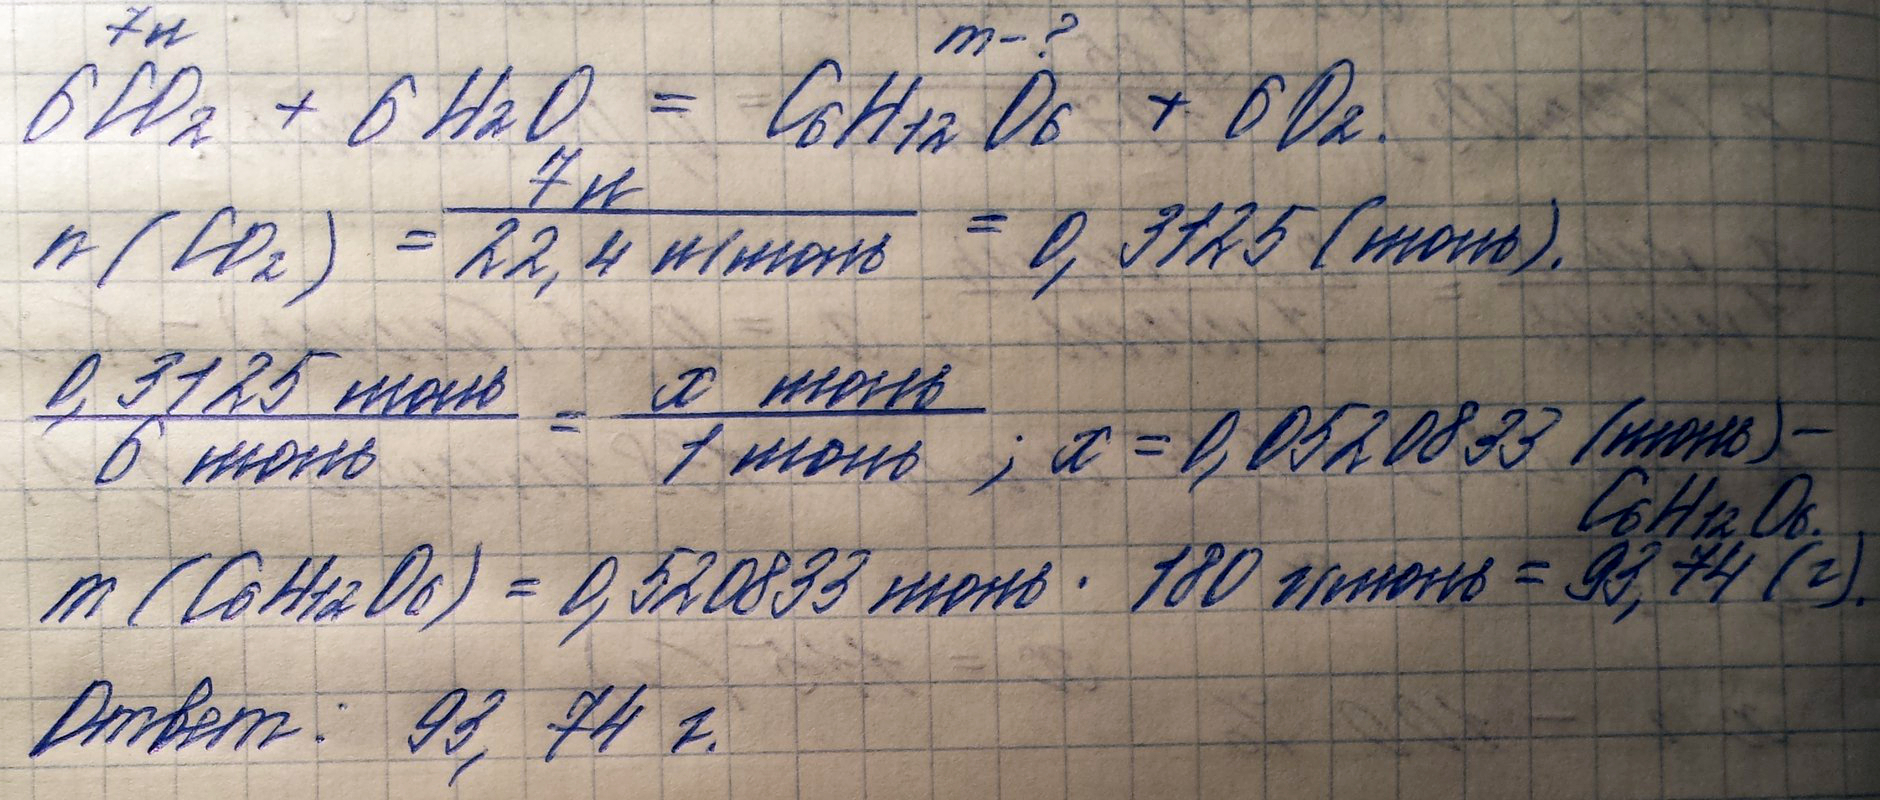 7л m-?
6CO₂ + 6H₂O = C₆H₁₂O₆ + 6O₂.
n(CO₂) = 7л / 22,4 л/моль = 0,3125 (моль).
0,3125 моль / 6 моль = x моль / 1 моль ; x = 0,0520833 (моль) –
C₆H₁₂O₆.
m(C₆H₁₂O₆) = 0,520833 моль · 180 г/моль = 93,74 (г).
Ответ: 93,74 г.